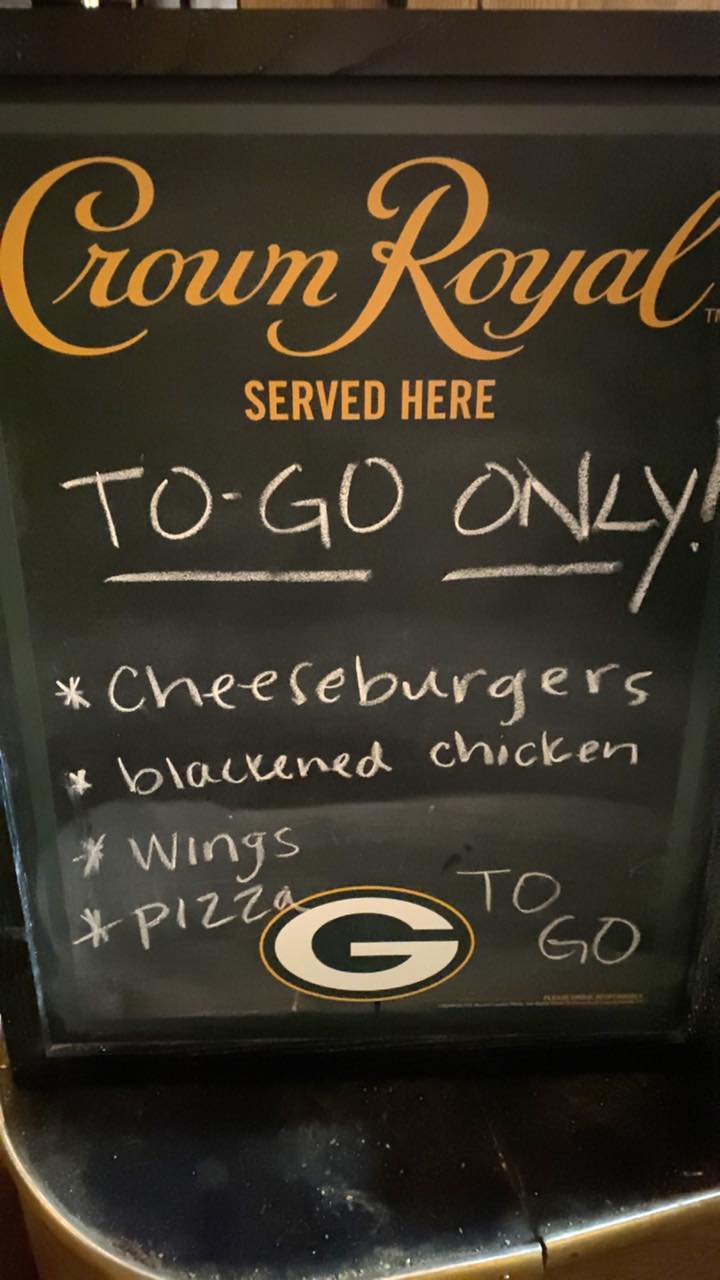 Crown Royal
TM
SERVED HERE
TO-GO ONLY!
* Cheeseburgers
* blackened chicken
* Wings
* pizza
TO
GO
G